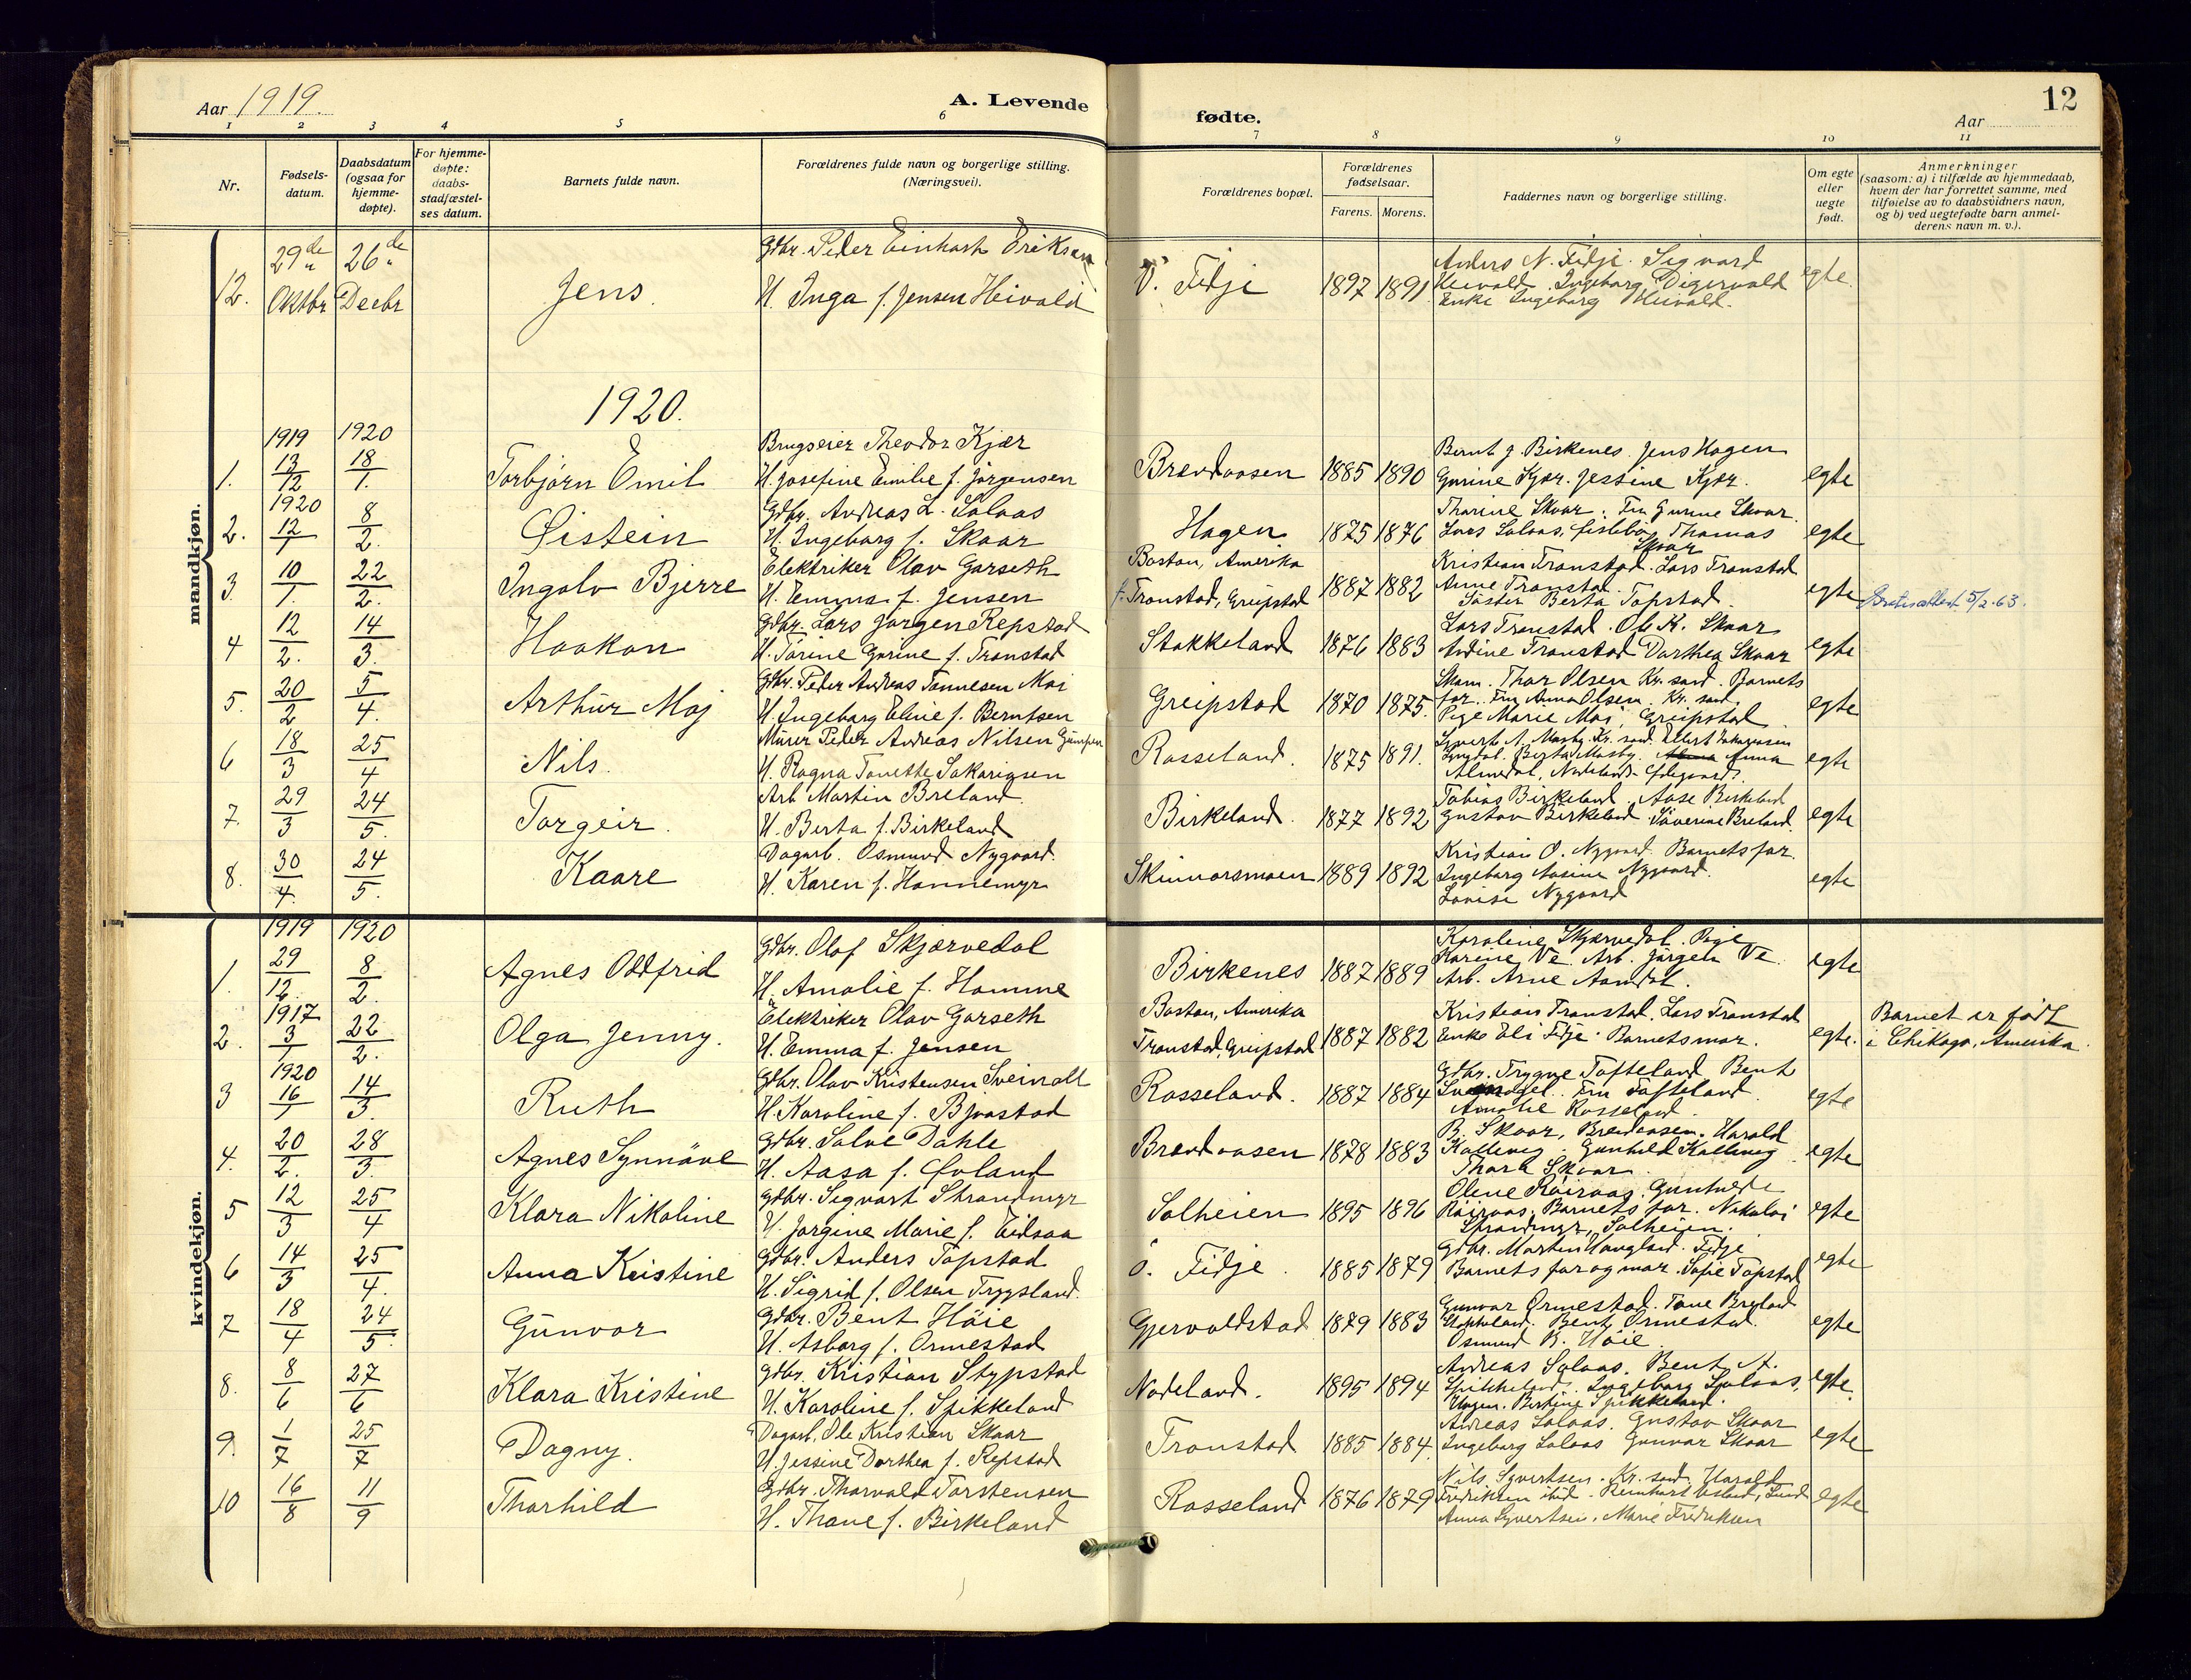 Aar 1919.
A. Levende
fødte.
12
Aar
1 2 3 4 5 6 7 8 9 10 11
Nr.
Fødsels-
datum.
Daabsdatum
(ogsaa for
hjemme-
døpte).
For hjemme-
døpte:
daabs-
stadfæstel-
ses datum.
Barnets fulde navn.
Forældrenes fulde navn og borgerlige stilling.
(Næringsvei).
Forældrenes bopæl.
Forældrenes
fødselsaar.
Farens. Morens.
Faddernes navn og borgerlige stilling.
Om egte
eller
uegte
født.
Anmerkninger
(saasom: a) i tilfælde av hjemmedaab,
hvem der har forrettet samme, med
tilføielse av to daabsvidners navn,
og b) ved uegtefødte barn anmel-
derens navn m. v.).
mandkjøn.
12. 29de Oktbr 26de Decbr Jens. Gdbr. Peder Einhart Eriksen
H. Inga f. Jensen Heivald V. Fidje 1897 1891 Anders N. Fidje. Sigvard
Heivald. Ingeborg Digervald
Enke Ingeborg Heivald. egte.
1920.
1919 1920
1. 13/12 18/1. Torbjørn Emil Brugseier Theodor Kjær
H. Josefine Emilie f. Jörgensen Brændaasen 1885 1890 Bernt J. Birkenes. Jens Hagen
Gurine Kjær. Jessine Kjær. egte
1920
2. 12/1 8/2. Øistein Gdbr. Andreas L. Salaas
H. Ingeborg f. Skaar Hagen 1875 1876 Tharine Skaar. Fru Gurine Skaar.
Lars Salaas, Thomas
Skaar egte
3. 10/1. 22/2. Ingolv Bjerre Elektriker Olav Garseth
H. Emma f. Jensen Boston, Amerika
f. Tronstad, Greipstad 1887 1882 Kristian Tronstad. Lars Tronstad
Anne Tronstad.
Söster Berta Topstad. egte 5/2.63.
4 12/2. 14/3. Haakon Gdbr. Lars Jørgen Repstad
H. Torine Gurine f. Tronstad Stokkeland 1876 1883 Lars Tronstad. Ole K. Skaar
Andine Tronstad Dorthea Skaar egte
5. 20/2 5/4. Arthur Moj Gdbr. Peder Andreas Tønnesen Moi
H. Ingeborg Eline f. Berntsen Greipstad 1870 1875. Skom. Thor Olsen Kr. sand. Barnets
far. Fru Anna Olsen. Kr. sand.
Pige Marie Moi, Greipstad. egte
6 18/3 25/4 Nils. Murer Peder Andreas Nilsen
H. Ragna Tonette Sakarigsen Rosseland. 1875 1891. Syvert N. Mosby. Kr. sand.
Berta Mosby. Anna
Almedal, egte
7. 29/3 24/5. Torgeir. Arb. Martin Breland.
H. Berta f. Birkeland Birkeland. 1877 1892 Tobias Birkeland. Aase Birkeland
Gustav Birkeland. Söverine Breland. egte
8. 30/4. 24/5. Kaare Dagarb. Osmund Nygaard.
H. Karen f. Honnemyr Skinnarsmoen 1889 1892 Kristian O. Nygaard. Barnets far.
Ingeborg Aasine Nygaard.
Lovise Nygaard egte
kvindekjøn.
1919 1920
1. 29/12. 8/2. Agnes Oddfrid Gdbr. Olaf Skjærvedal
H. Amalie f. Homme Birkenes 1887 1889 Karoline Skjærvedal. Pige
Karine Ve. Arb. Jörgen Ve.
Arb. Arne Aamdal. egte
1917
2. 3/1 22/2. Olga Jenny. Elektriker Olav Garseth
H. Emma f. Jensen Boston, Amerika
Tronstad, Greipstad 1887 1882 Kristian Tronstad. Lars Tronstad
Enke Eli Fidje. Barnets mor. egte. Barnet er født
i Chikago, Amerika.
1920
3 16/1 14/3. Ruth Gdbr. Olav Kristensen Sveinall
H. Karoline f. Bjaastad Rosseland. 1887 1884 Gdbr. Trygve Tofteland Bent
Fru Tofteland.
Amalie Rosseland. egte
4. 20/2. 28/3. Agnes Synnöve Gdbr. Salve Dahle
H. Aasa f. Øvland Brændaasen 1878 1883 B. Skaar, Brændaasen. Harald
Kallevig. Gunhild Kallevig
Thora Skaar. egte
5 12/3 25/4 Klara Nikoline Gdbr. Sigvart Strandmyr
H. Jorgine Marie f. Eidsaa Solheien 1895 1896 Olene Röiraas. Guntvede
Röiraas. Barnets far. Nikolai
Strandmyr, Solheien. egte
6 14/3 25/4. Anna Kristine Gdbr. Anders Topstad
H. Sigrid f. Olsen Trygsland. Ö. Fidje. 1885 1879 Gdbr. Martin Haugland. Fidje
Barnets far og mor. Sofie Topstad egte
7 18/4 24/5. Gunvor Gdbr. Bent Höie
H. Asborg f. Ormestad Gjervoldstad 1879 1883 Gunvor Ormestad. Tone Breland
Stokkeland. Bent Ormestad.
Osmund B. Höie. egte
8. 8/6 27/6 Klara Kristine Gdbr. Kristian Stypstad
H. Karoline f. Spikkeland Nodeland. 1895 1894 Andreas Salaas. Bent A.
Spikkeland. Ingeborg Salaas,
Hagen. Bertine Spikkeland. egte.
9. 1/7 25/7 Dagny. Dagarb. Ole Kristian Skaar
H. Jessine Dorthea f. Repstad Tronstad 1885 1884 Andreas Salaas. Gustav Skaar
Ingeborg Salaas Gunvor Skaar egte
10 16/8 11/9 Thorhild Gdbr. Thorvald Torstensen
H. Thone f. Birkeland Rosseland 1876 1879 Nils Syvertsen. Kr. sand. Harald
Fredriksen ibid. Reinhart
Anna Syvertsen. Marie Fredriksen egte